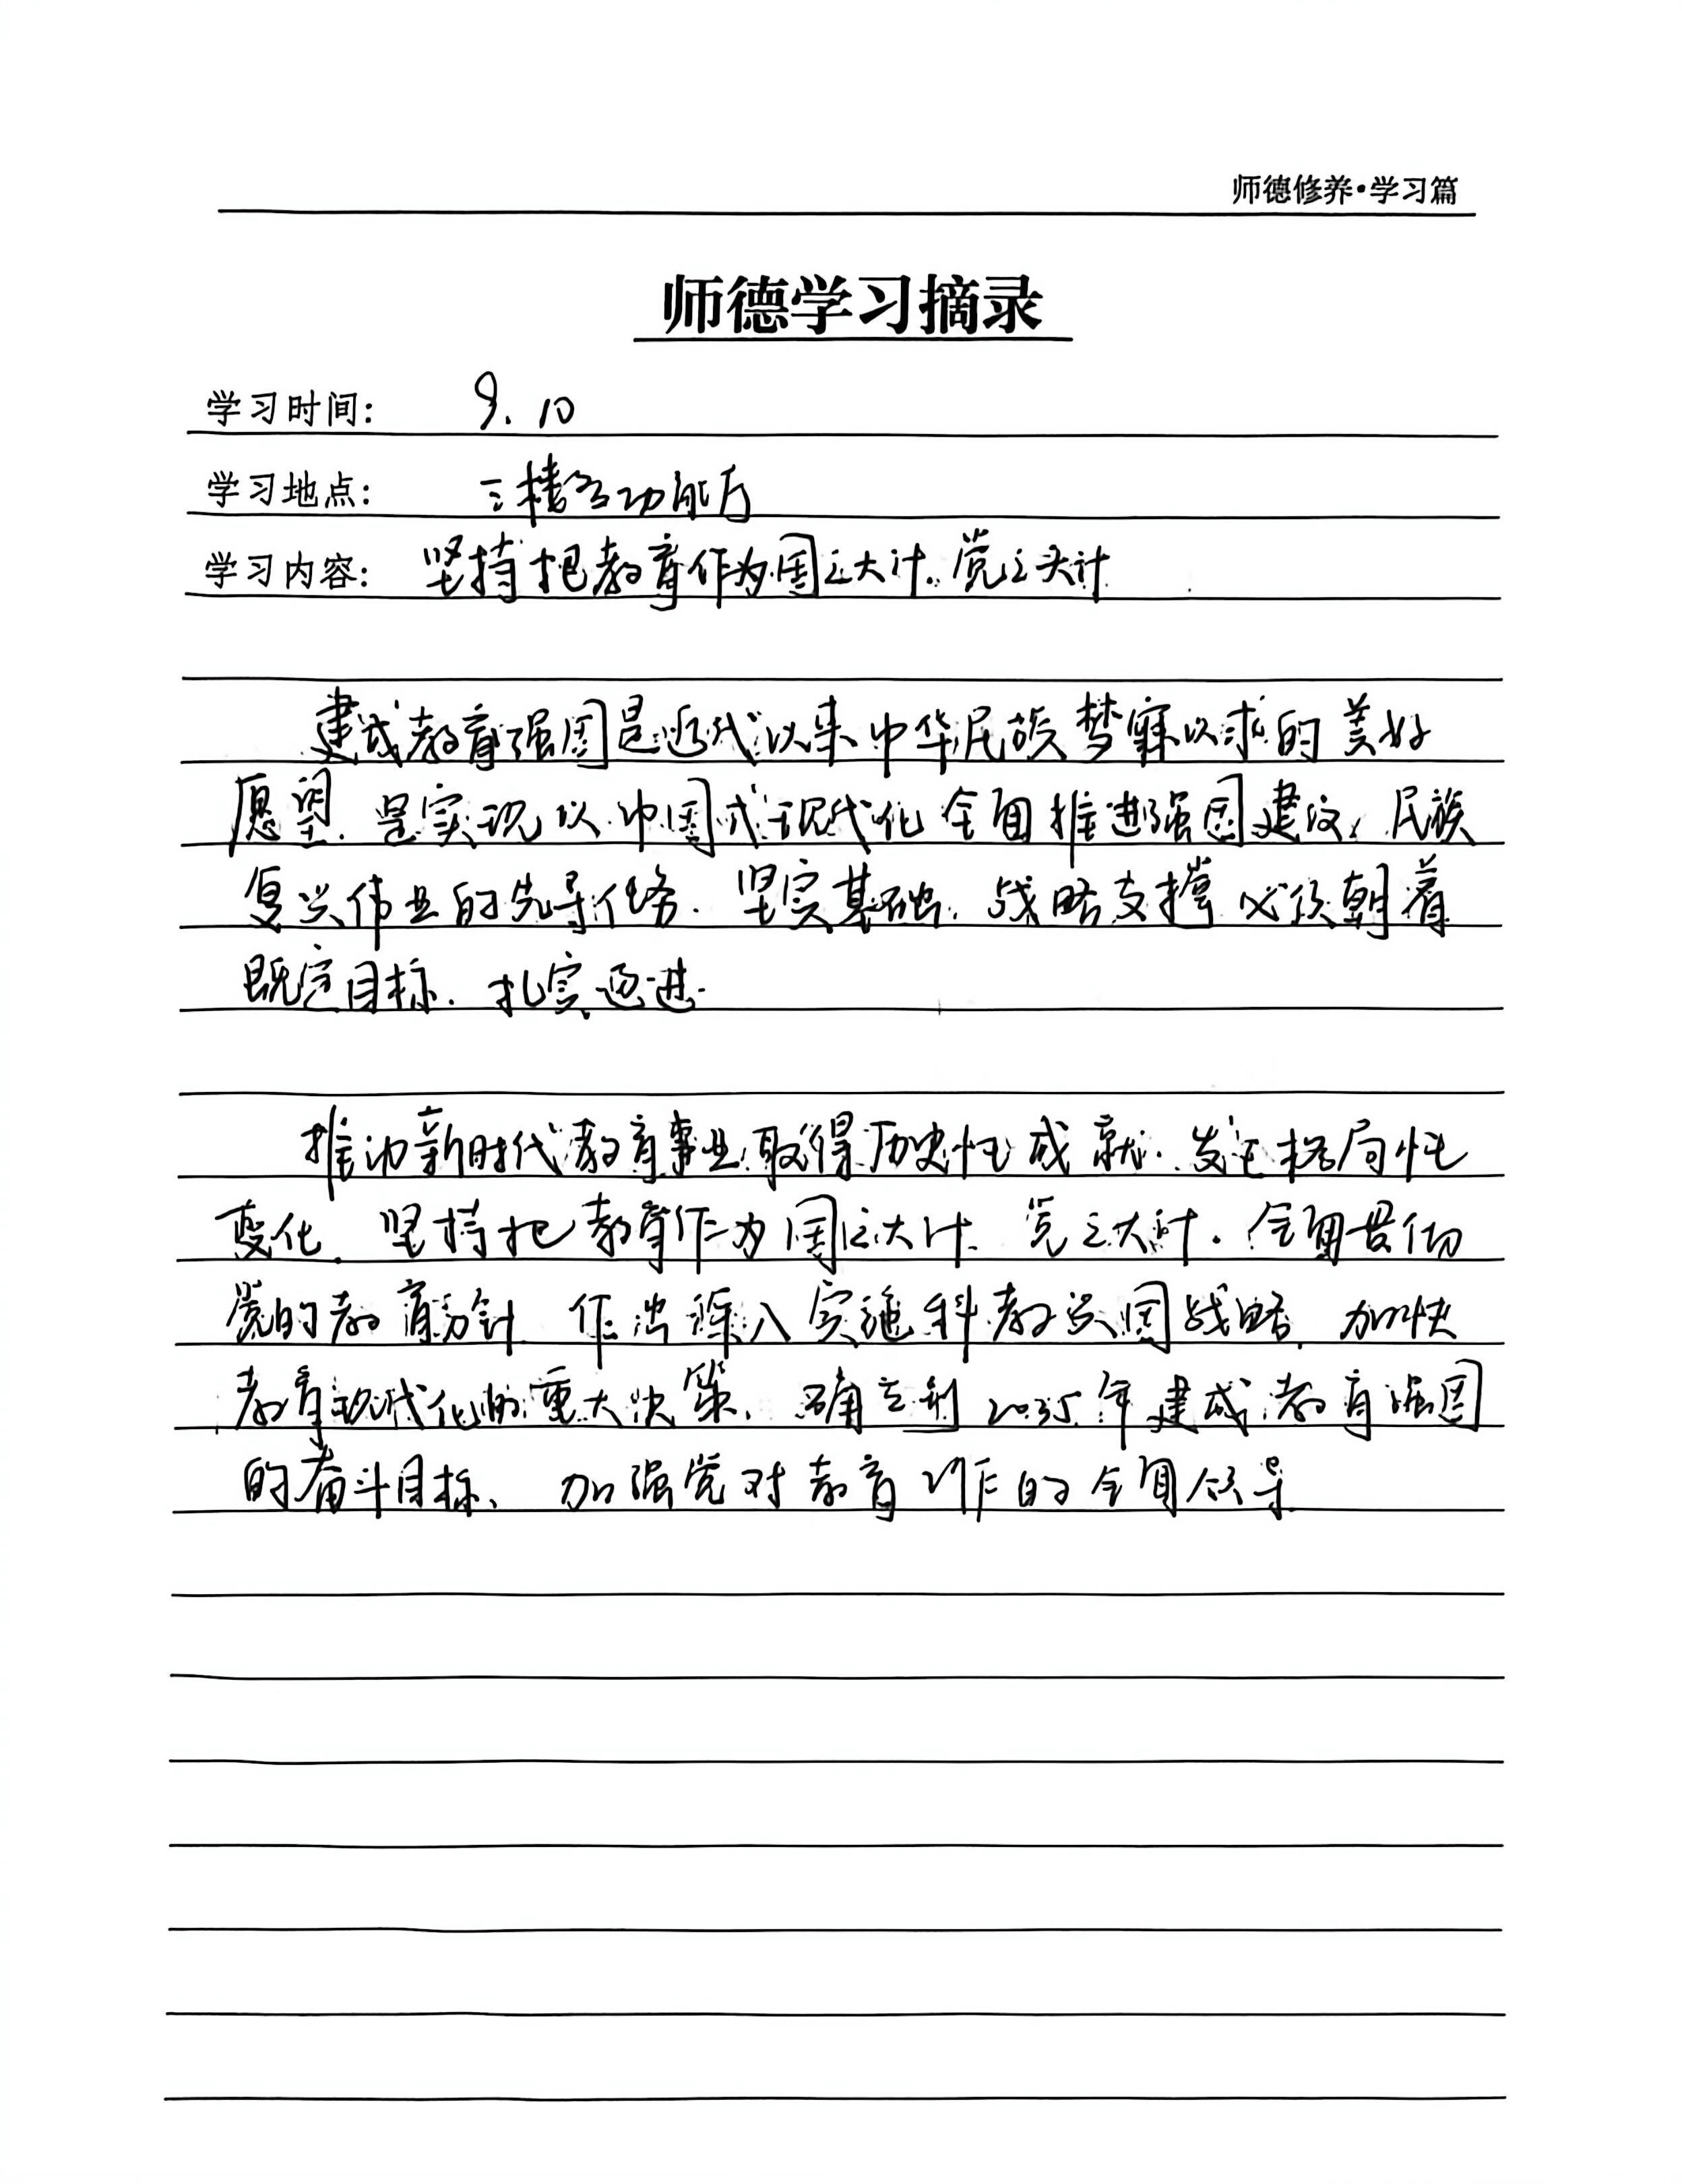 师德修养·学习篇
师德学习摘录
学习时间: 9.10
学习地点: 三楼多功能厅
学习内容: 坚持把教育作为国之大计。党之大计
建成教育强国是近代以来中华民族梦寐以求的美好
愿望、是实现以中国式现代化全面推进强国建设、民族
复兴伟业的先导任务、坚实基础、战略支撑必须朝着
既定目标、扎实迈进.
推动新时代教育事业取得历史性成就、发生格局性
变化、坚持把教育作为国之大计、党之大计.全面贯彻
党的教育方针 作出深入实施科教兴国战略、加快
教育现代化的重大决策、确立到2035年建成教育强国
的奋斗目标、加强党对教育工作的全面领导